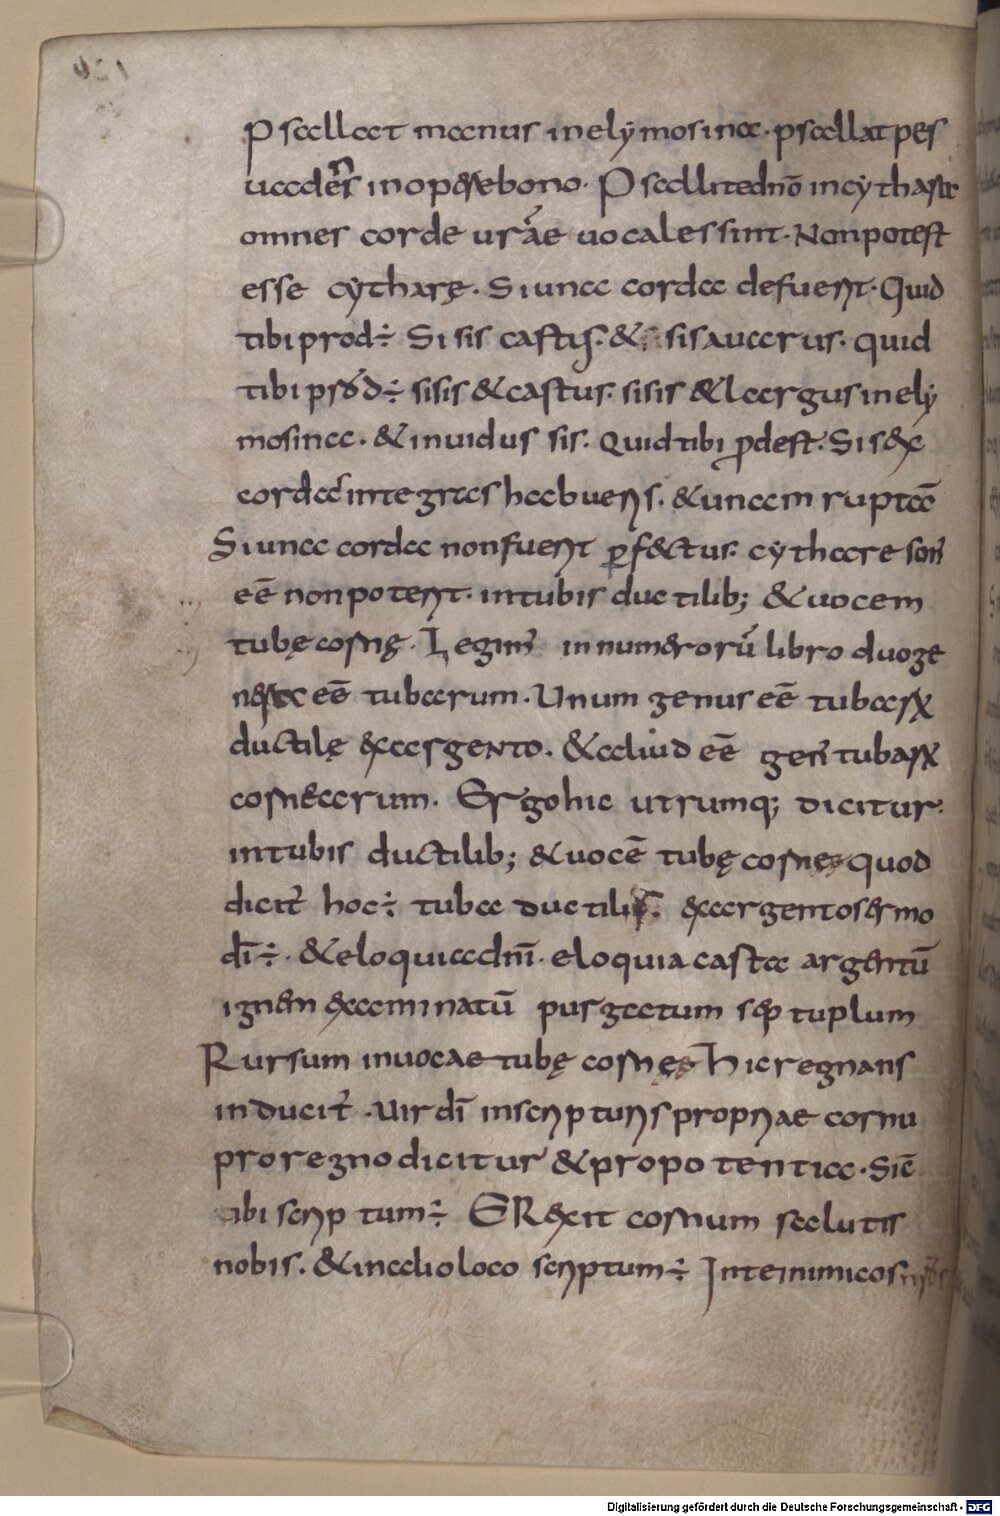 Psallat manus in elymosina. psallat pes
uadens in opere bono. Psallite dnō in cythara
omnes corde urāe uocales sint. Non potest
esse cytharę. Si una corda defuerit. Quid
tibi prod÷ Si sis castus. & sis auarus. quid
tibi prod÷ sisis & castus. sisis & largus in ely
mosina. & inuidus sis. Quid tibi pdest. Si sex
cordas integras habueris. & unam ruptā
Si una corda non fuerit pfectus. cythare son
eē non potent. in tubis ductilib; & uocem
tubę cornę. Legim in numerorū libro duo ge
nera eē tubarum. Unum genus eē tubarx
ductilę ex argento. & aliud eē gen tubarx
cornearum. Ergo hic utrumq; dicitur.
in tubis ductilib; & uocē tubę cornę quod
dicit hoc÷ tuba ductilis. ex argento sermo
dī÷. & eloquia dnī. eloquia casta argentū
ignem examinatū purgatum septuplum
Rursum in uocae tubę cornę Hic regnans
inducit. Uir dī in scripturis propriae cornu
pro regno dicitur & pro potentia. Sic
tibi scriptum÷ ERexit cornum salutis
nobis. & in alio loco scriptum÷ In te inimicos nros
421
Digitalisierung gefördert durch die Deutsche Forschungsgemeinschaft - DFG